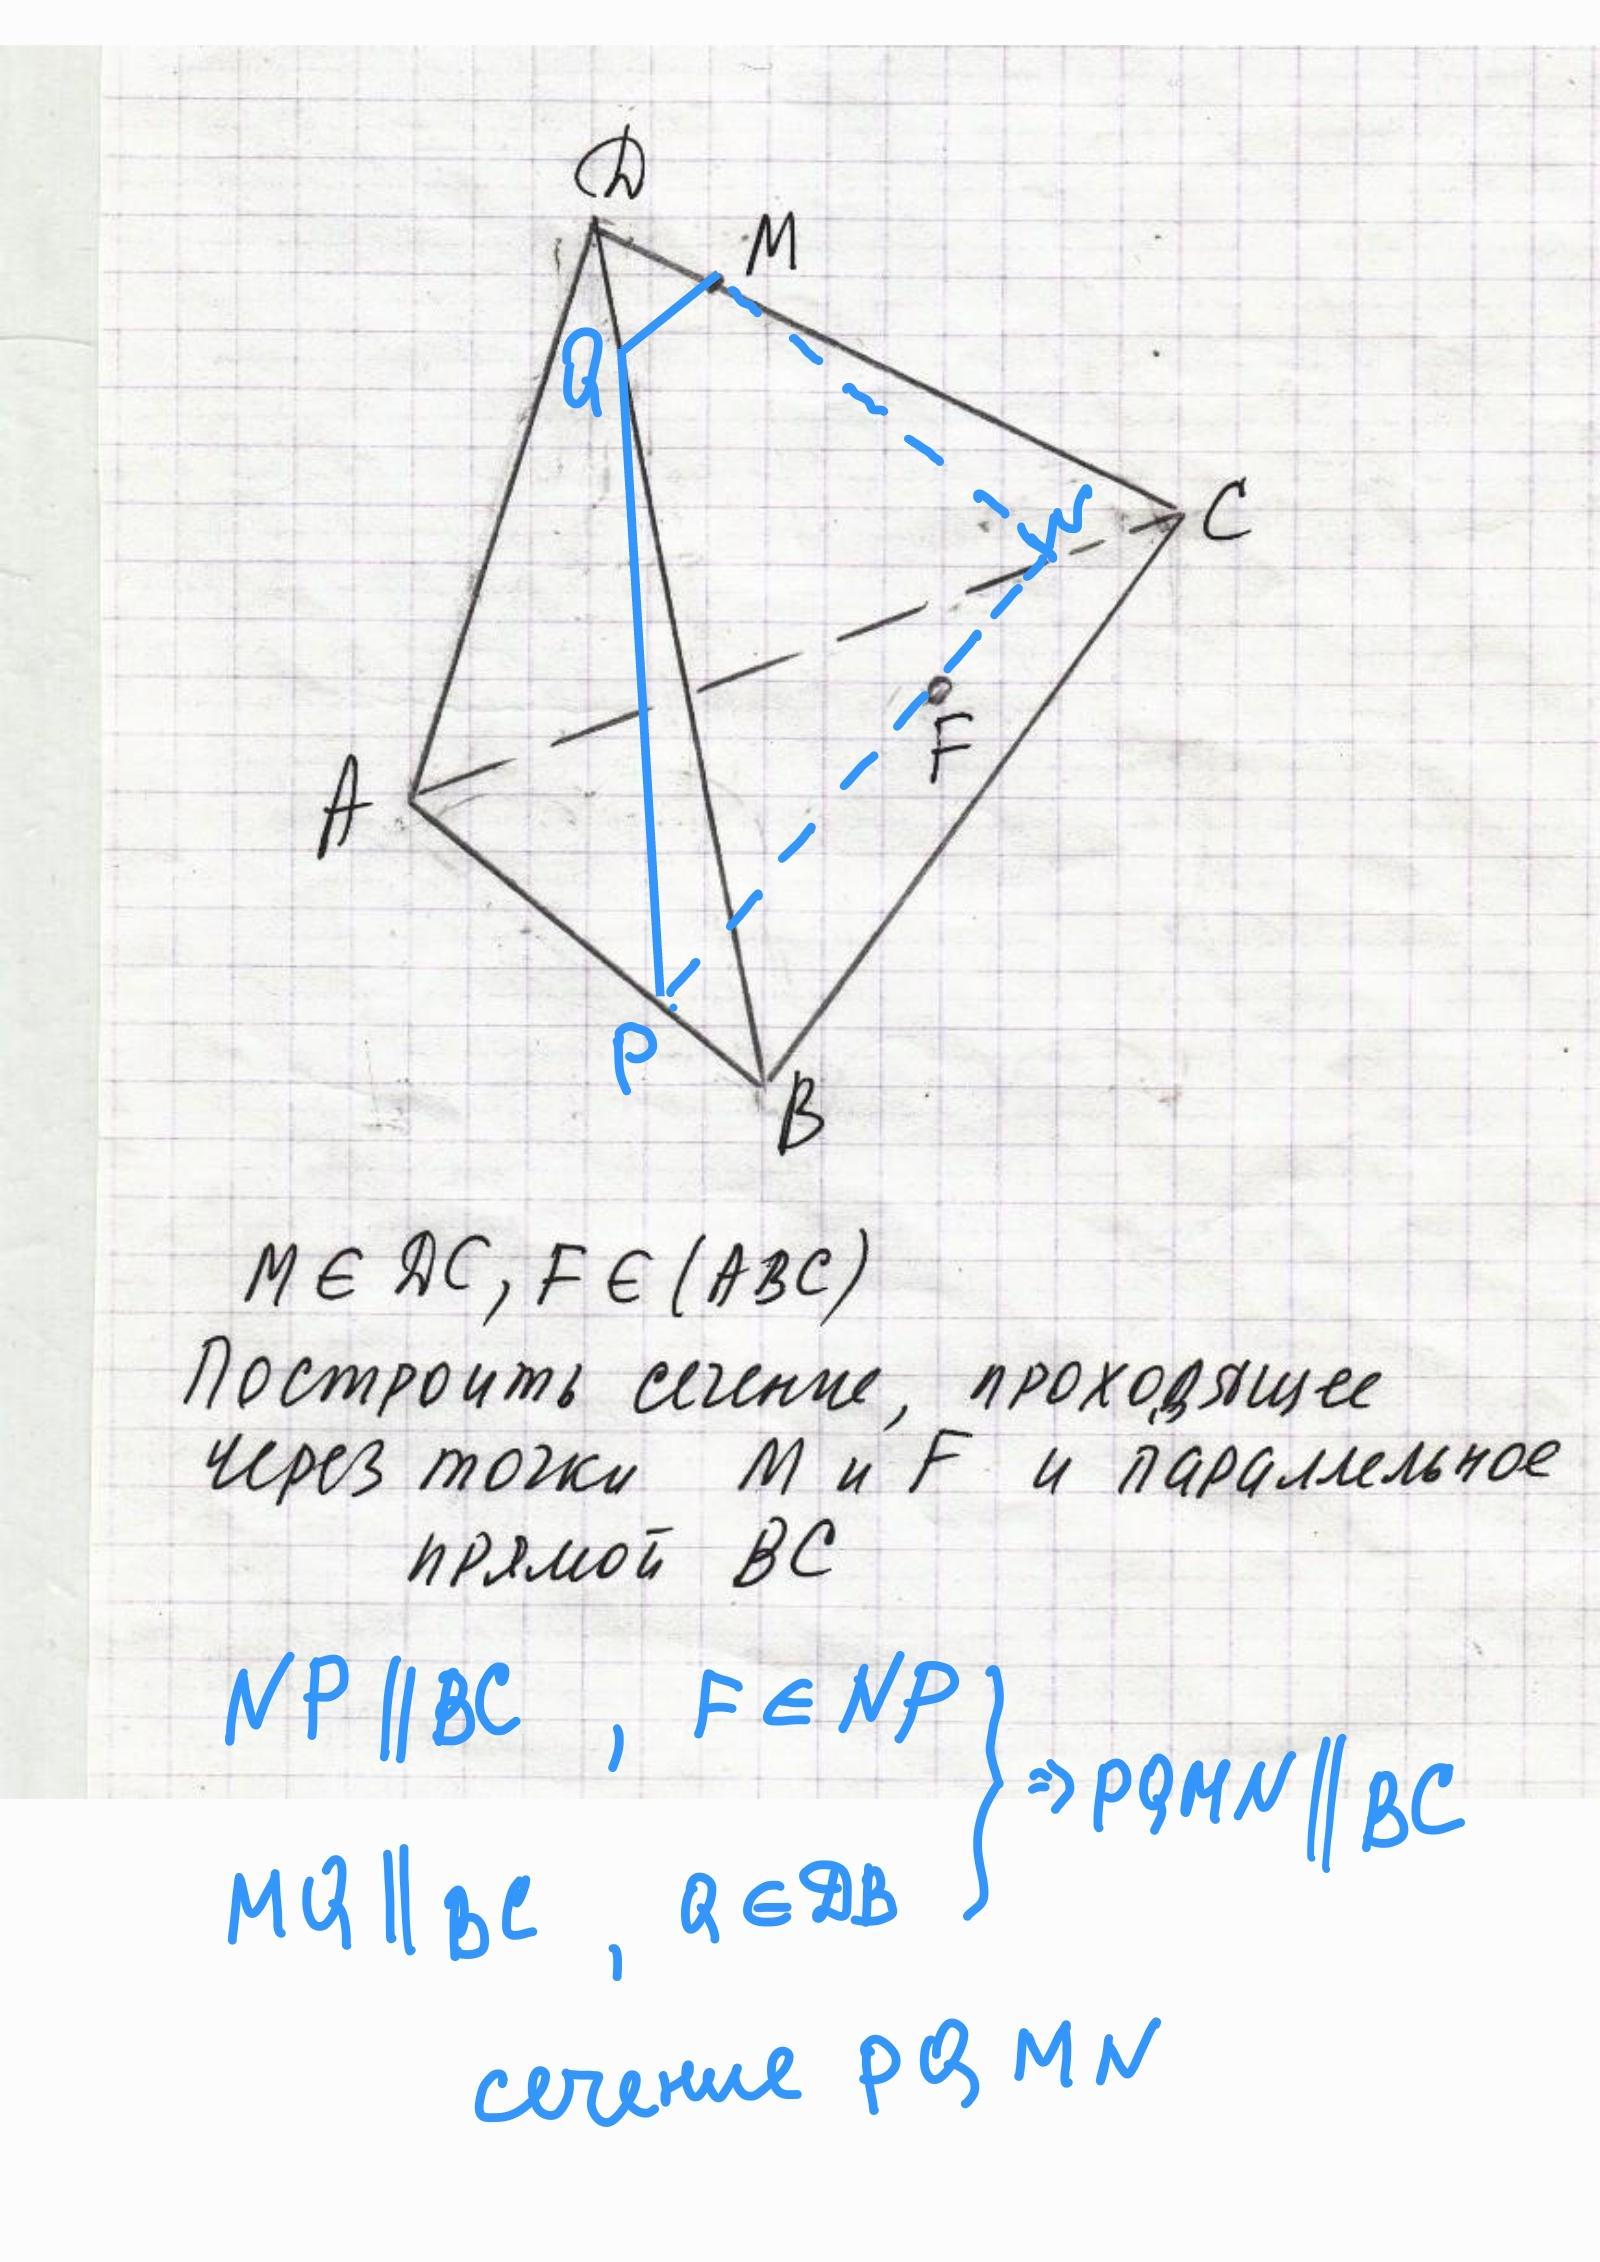 D
M
Q
N
C
F
A
P
B
M ∈ DC, F ∈ (ABC)
Построить сечение, проходящее
через точки M и F и параллельное
прямой BC
NP || BC , F ∈ NP
⇒ PQMN || BC
MQ || BC , Q ∈ DB
сечение PQMN